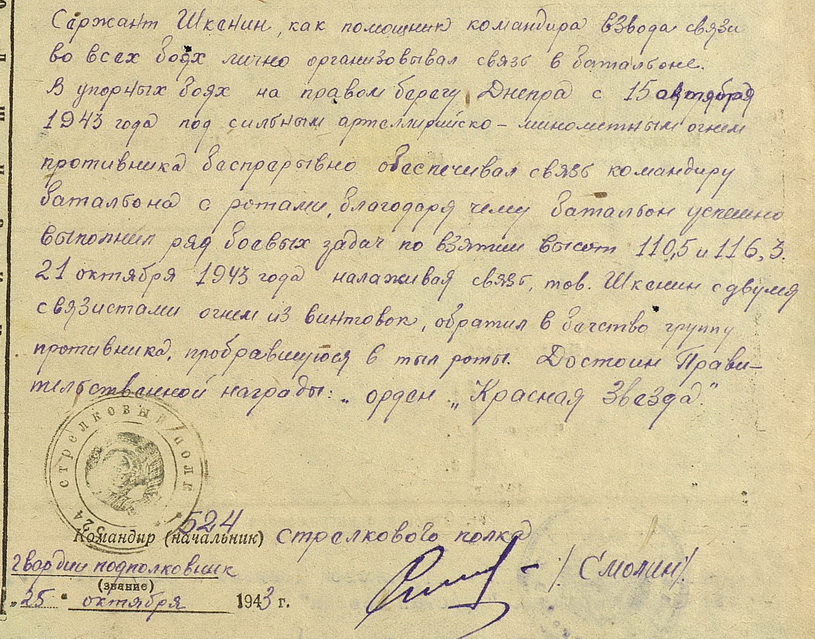 Сержант Шкенин, как помошник командира взвода связи
во всех боях лично организовывал связь в баталБоне.
В упорных боях на правом берегу Днепра с 15 октября
1943 года под сильным артеллирийско-минометным огнем
противника беспрарывно обеспечивал связь командиру
баталбона с ротами, благодаря чему баталбон успешно
выполнил ряд боевых задач по взятии высот 110,5 и 116,3.
21 октября 1943 года налаживая связь, тов. Шкенин с двумя
связистами огнем из винтовок, обратил в бегство группу
противника, пробравшуюся в тыл роты. Достоин Прави-
тельственной награды: „ орден „Красная Звезда".
стрелковый полк
524
Командир (начальник) 524 стрелкового полка
гвардии подполковник
(звание)
/Смолин/
„25" октября 1943 г.